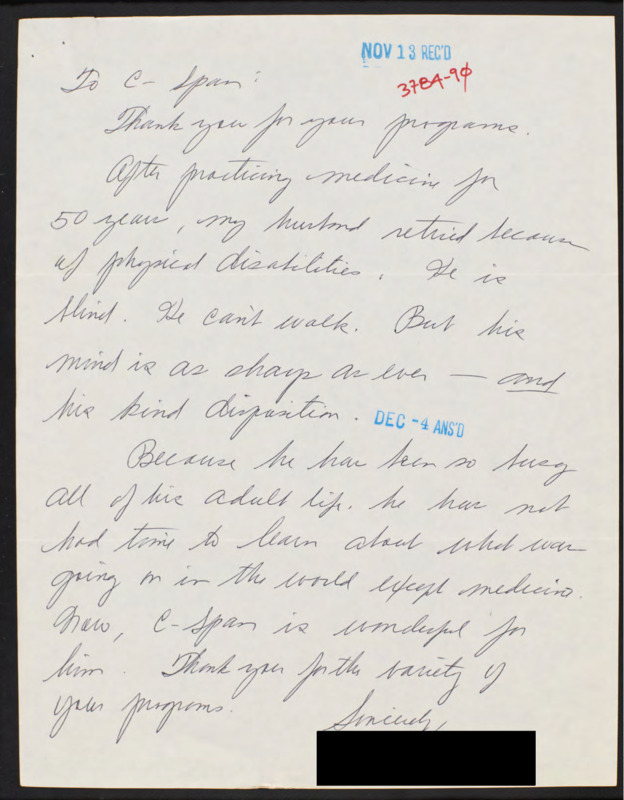 NOV 13 REC'D
378A-90
To C-Span:
Thank you for your programs.
After practicing medicine for
50 years, my husband retired because
of physical disabilities. He is
blind. He can't walk. But his
mind is as sharp as ever — and
his kind disposition.
DEC -4 ANS'D
Because he has been so busy
all of his adult life, he has not
had time to learn about what was
going on in the world except medicine.
Now, C-Span is wonderful for
him. Thank you for the variety of
your programs.
Sincerely,